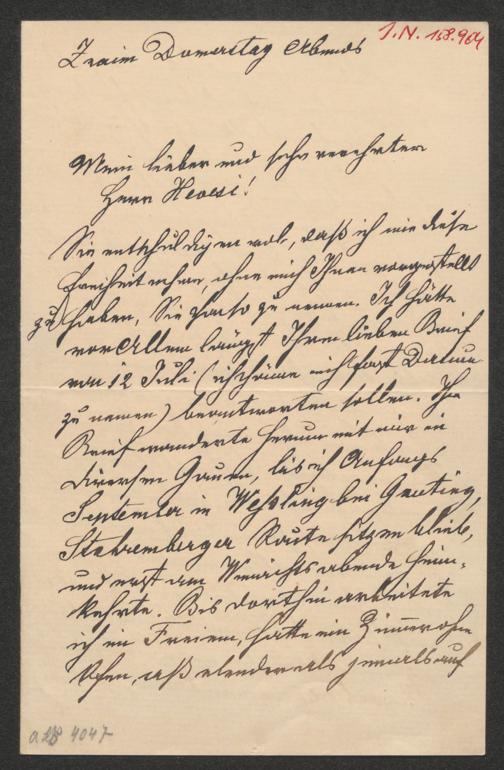 J.N. 158.964
Znaim Donnerstag Abends
Mein lieber und sehr verehrter
Herr Hevesi!
Sie entschuldigen wol, daß ich mir diese
Freiheit nehme, ohne mich Ihnen vorgestellt
zu haben, Sie so zu nennen. Ich hätte
vor Allem längst Ihren lieben Brief
von 12 Juli (ich schäme mich fast Datum
zu nennen) beantworten sollen. Ihr
Brief wanderte herum mit mir in
diversen Gauen, bis ich Anfangs
September in Weßling bei Gauting,
Staremberger Route sitzen blieb,
und erst am Weinachtsabende heim-
kehrte. Bis dorthin arbeitete
ich im Freien, hatte ein Zimmer ohne
Ofen, aß elender als jemals auf
a 28 4047